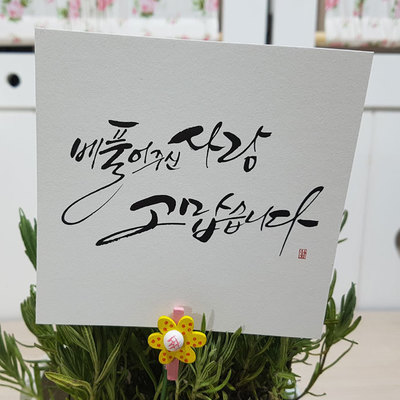 베풀어주신 사랑
고맙습니다